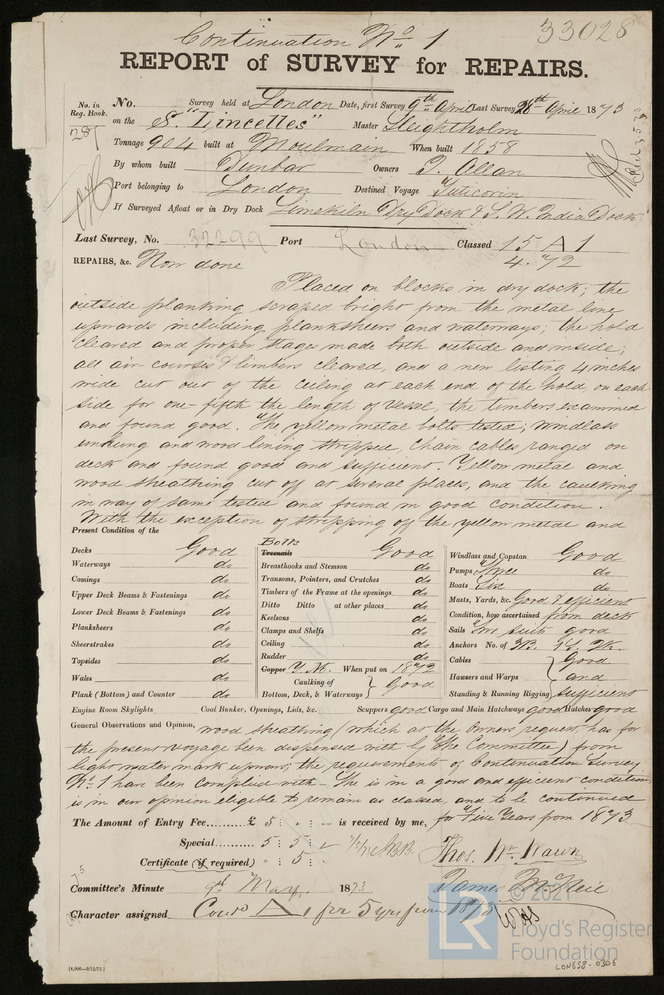 Continuation No. 1
33028
REPORT of SURVEY for REPAIRS.
No. in Reg. Book. No. Survey held at London Date, first Survey 9th April Last Survey 26th April 1873
281 on the S. "Lincelles" Master Sleightholm
Tonnage 904 built at Moulmain When built 1858
By whom built Dunbar Owners J. Allan
Port belonging to London Destined Voyage Tuticorin
If Surveyed Afloat or in Dry Dock Limekiln Dry Dock & S. W. India Dock
Last Survey, No. 32299 Port London Classed 15 A 1
4.72
REPAIRS, &c. Now done
Placed on blocks in dry dock; the
outside planking scraped bright from the metal line
upwards including planksheers and waterways; the hold
cleared and proper stages made both outside and inside;
all air courses & limbers cleared, and a new listing 4 inches
wide cut out of the ceiling at each end of the hold, on each
side for one-fifth the length of Vessel, the timbers examined
and found good. The yellow metal bolts tested; windlass
unhung and wood lining stripped, chain cables ranged on
deck and found good and sufficient. Yellow metal and
wood sheathing cut off at several places, and the caulking
in way of same tested and found in good condition.
With the exception of stripping off the yellow metal and
Present Condition of the
Decks Good
Waterways do
Comings do
Upper Deck Beams & Fastenings do
Lower Deck Beams & Fastenings do
Planksheers do
Sheerstrakes do
Topsides do
Wales do
Plank (Bottom) and Counter do
Bolts
Treenails Good
Breasthooks and Stemson do
Transoms, Pointers, and Crutches do
Timbers of the Frame at the openings do
Ditto Ditto at other places do
Keelsons do
Clamps and Shelfs do
Ceiling do
Rudder do
Copper Y.M. When put on 1872
Caulking of
Bottom, Deck, & Waterways } Good
Windlass and Capstan Good
Pumps Three do
Boats Six do
Masts, Yards, &c. Good & efficient
Condition, how ascertained from deck
Sails Two suits good
Anchors No. of 3B.
Cables Good
Hausers and Warps and
Standing & Running Rigging sufficient
Engine Room Skylights Coal Bunker, Openings, Lids, &c. Scuppers good Cargo and Main Hatchways good Hatches good
General Observations and Opinion, wood sheathing (which at the Owners request, has for
the present voyage been dispensed with by The Committee) from
light water mark upwards; the requirements of Continuation Survey
No. 1 have been complied with. She is in a good and efficient condition,
is in our opinion eligible to remain as classed, and to be continued
for Five Years from 1873
The Amount of Entry Fee......... £ 5 : : is received by me,
Special......... 5 : 5 :
Certificate (if required) : 5 :
Thos. Wm. Wawn
James McNeil
Committee's Minute 9th May 1873
Character assigned Cont A 1 for 5 yrs from 1873
© 2021
LR
Lloyd's Register
Foundation
[4,000—6/12/72.]
LON658-0306